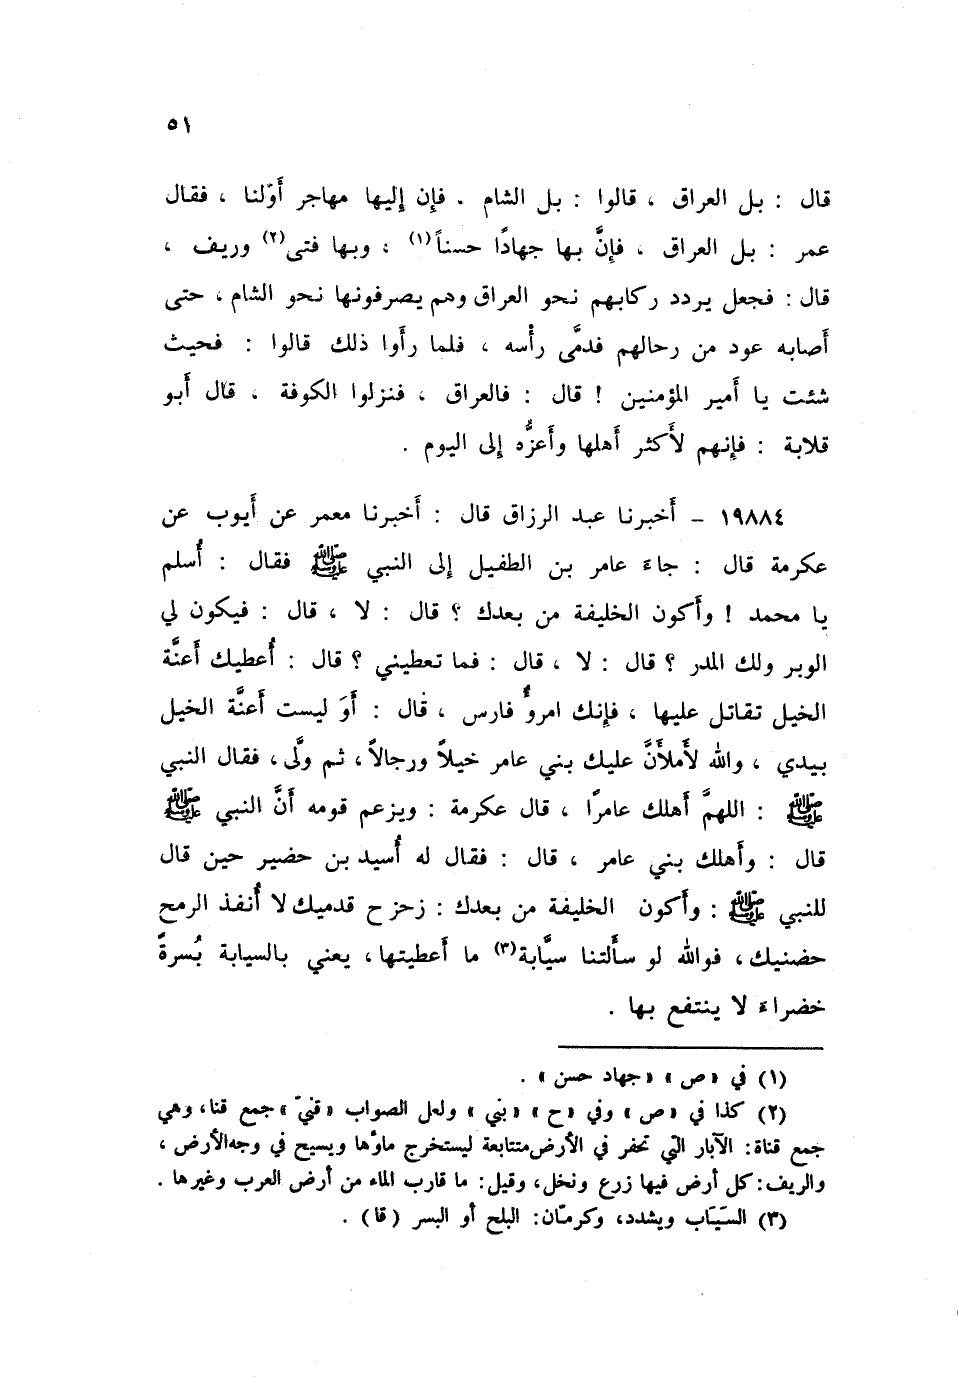 ٥١
قال : بل العراق ، قالوا : بل الشام . فإن إليها مهاجر أوّلنا ، فقال
عمر : بل العراق ، فإنَّ بها جهادًا حسناً(١) ، وبها فتى(٢) وريف ،
قال : فجعل يردد ركابهم نحو العراق وهم يصرفونها نحو الشام ، حتى
أصابه عود من رحالهم فدمَّى رأْسه ، فلما رأَوا ذلك قالوا : فحيث
شئت يا أَمير المؤمنين ! قال : فالعراق ، فنزلوا الكوفة ، قال أَبو
قلابة : فإنهم لأَكثر أَهلها وأَعزُّه إلى اليوم .
١٩٨٨٤ - أَخبرنا عبد الرزاق قال : أَخبرنا معمر عن أَيوب عن
عكرمة قال : جاءَ عامر بن الطفيل إلى النبي ﷺ فقال : أُسلم
يا محمد ! وأَكون الخليفة من بعدك ؟ قال : لا ، قال : فيكون لي
الوبر ولك المدر ؟ قال : لا ، قال : فما تعطيني ؟ قال : أُعطيك أَعنَّة
الخيل تقاتل عليها ، فإنك امروٌ فارس ، قال : أَوَ ليست أَعنَّة الخيل
بيدي ، والله لأَملأَنَّ عليك بني عامر خيلاً ورجالاً ، ثم ولَّى ، فقال النبي
ﷺ : اللهمَّ أَهلك عامرًا ، قال عكرمة : ويزعم قومه أَنَّ النبي ﷺ
قال : وأَهلك بني عامر ، قال : فقال له أُسيد بن حضير حين قال
للنبي ﷺ : وأَكون الخليفة من بعدك : زحزح قدميك لا أُنفذ الرمح
حضنيك ، فوالله لو سأَلتنا سيَّابة(٣) ما أَعطيتها ، يعني بالسيابة بُسرةً
خضراءَ لا ينتفع بها .
(١) في « ص » « جهاد حسن » .
(٢) كذا في « ص » وفي « ح » « بني » ولعل الصواب « قنيّ » جمع قنا ، وهي
جمع قناة : الآبار التي تحفر في الأرض متتابعة ليستخرج ماؤها ويسيح في وجه الأرض ،
والريف : كل أرض فيها زرع ونخل ، وقيل : ما قارب الماء من أرض العرب وغيرها .
(٣) السَيَاب ويشدد ، وكرمّان : البلح أو البسر ( قا ) .